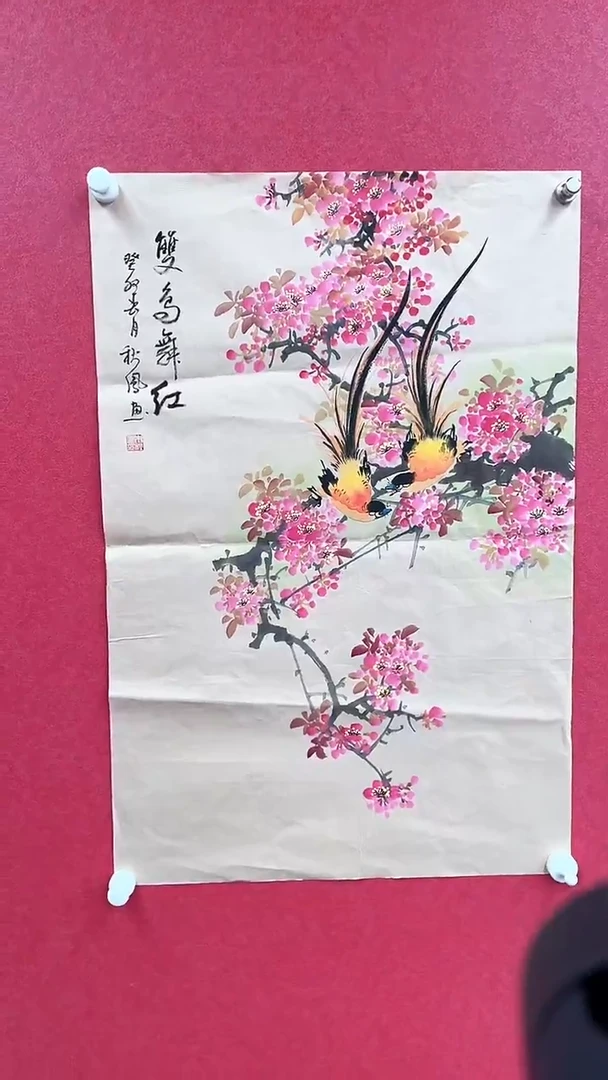 雙鳥舞红
癸卯春月秋鳳画